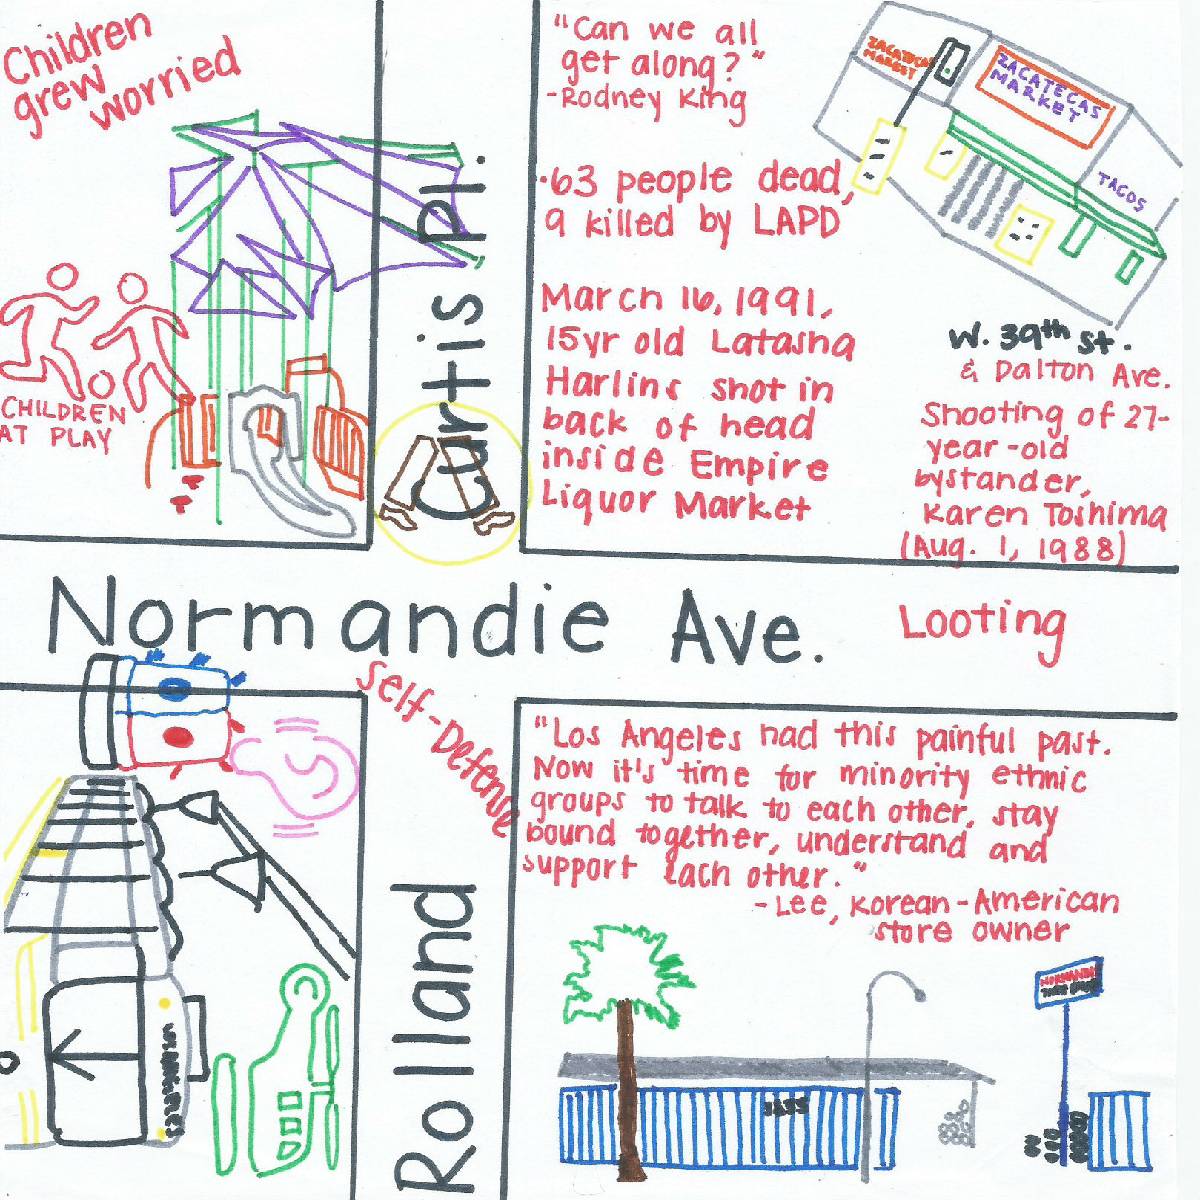 Children
grew
worried
CHILDREN
AT PLAY
Curtis Pl.
"Can we all
get along?"
-Rodney King
·63 people dead,
9 killed by LAPD
March 16, 1991,
15yr old Latasha
Harlins shot in
back of head
inside Empire
Liquor Market
ZACATECAS
MARKET
ZACATECAS
MARKET
TACOS
W. 39th St.
& Dalton Ave.
Shooting of 27-
year-old
bystander,
Karen Toshima
(Aug. 1, 1988)
Normandie Ave.
Looting
Self-Defense
Rolland
"Los Angeles had this painful past.
Now it's time for minority ethnic
groups to talk to each other, stay
bound together, understand and
support each other."
-Lee, Korean-American
store owner
NORMANDI